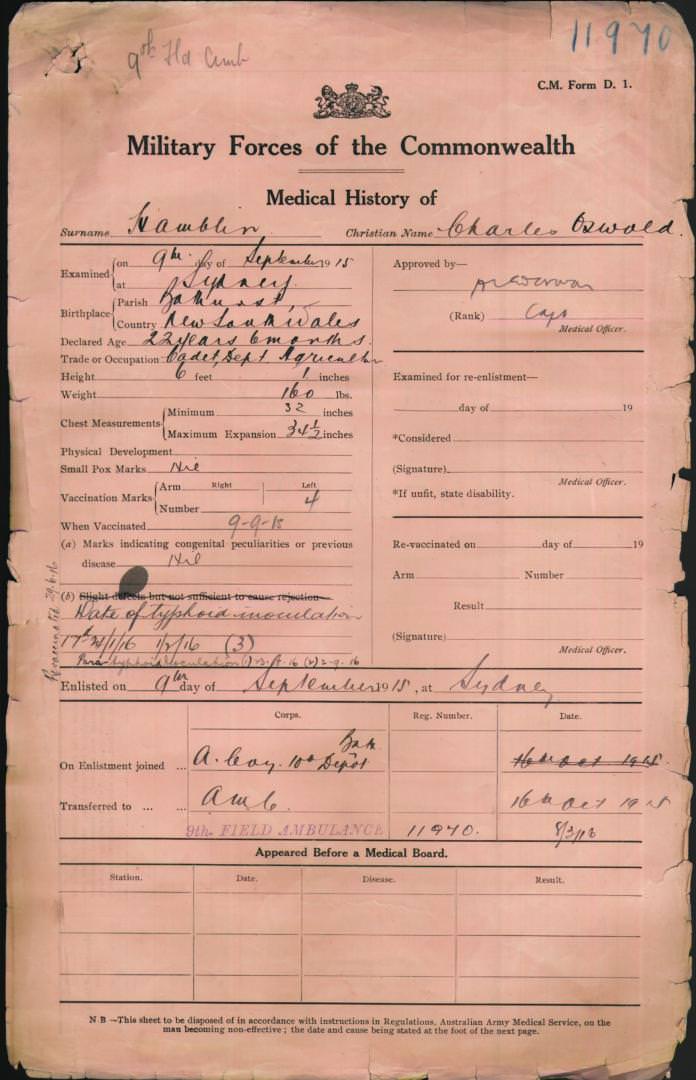 11970
9th Fld Amb
C.M. Form D. 1.
Military Forces of the Commonwealth
Medical History of
Surname Hamblin Christian Name Charles Oswold.
Examined { on 9th day of September 1915
at Sydney.
Birthplace { Parish Bathurst,
Country New South Wales
Declared Age 22 years 6 months.
Trade or Occupation Cadet, Dept Agricultur
Height 6 feet 1 inches
Weight 160 lbs.
Chest Measurements { Minimum 32 inches
Maximum Expansion 34½ inches
Physical Development
Small Pox Marks Nil
Vaccination Marks { Arm Right Left
Number 4
When Vaccinated 9-9-15
(a) Marks indicating congenital peculiarities or previous
disease Nil
(b) Slight defects but not sufficient to cause rejection
Date of typhoid inoculation
17th 24/1/16 1/2/16 (3)
Para typhoid inoculation (1) (2) 2-9-16
Revaccinated 29.6.16
Approved by—
(Rank) Capt
Medical Officer.
Examined for re-enlistment—
day of 19
*Considered
(Signature)
Medical Officer.
*If unfit, state disability.
Re-vaccinated on day of 19
Arm Number
Result
(Signature)
Medical Officer.
Enlisted on 9th day of September 1915, at Sydney
Corps. Reg. Number. Date.
On Enlistment joined ... A. Coy. 10th Depôt Bat. 16th Oct 1915.
Transferred to ... ... AMC. 16th Oct 1915
9th FIELD AMBULANCE 11970. 8/3/16
Appeared Before a Medical Board.
Station. Date. Disease. Result.
N.B —This sheet to be disposed of in accordance with instructions in Regulations, Australian Army Medical Service, on the
man becoming non-effective ; the date and cause being stated at the foot of the next page.